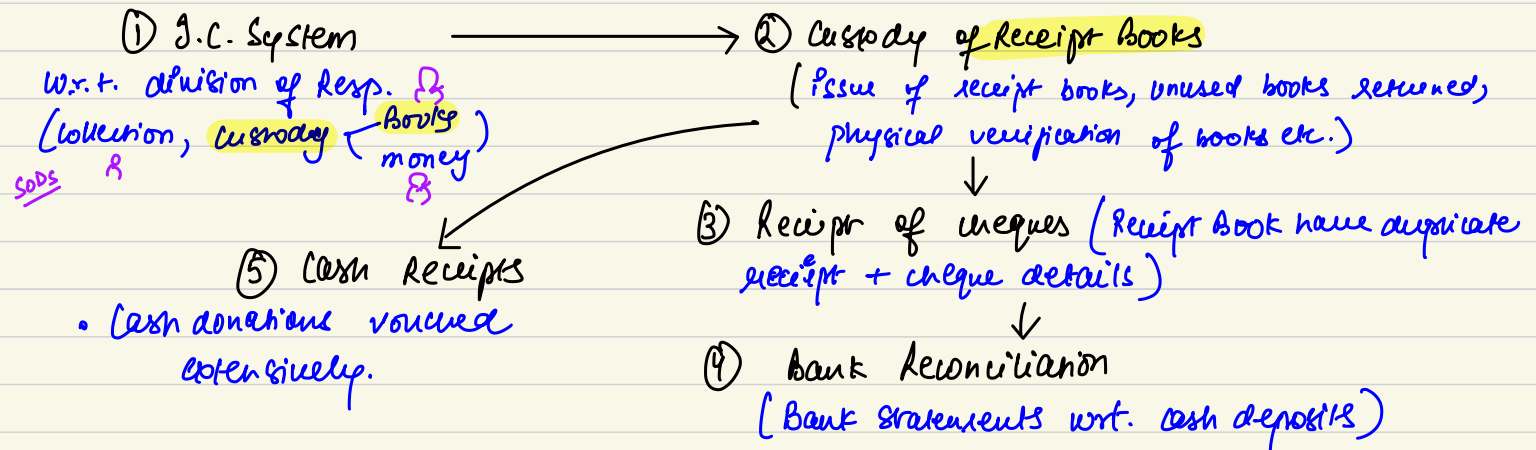 ① I.C. System → ② Custody of Receipt Books
w.r.t. division of Resp.
(Collection, Custody < Books
money)
SODs
(issue of receipt books, unused books returned,
physical verification of books etc.)
③ Receipt of cheques (Receipt Book have duplicate
receipt + cheque details)
④ Bank Reconciliation
(Bank statements wrt. cash deposits)
⑤ Cash Receipts
• Cash donations vouched
extensively.